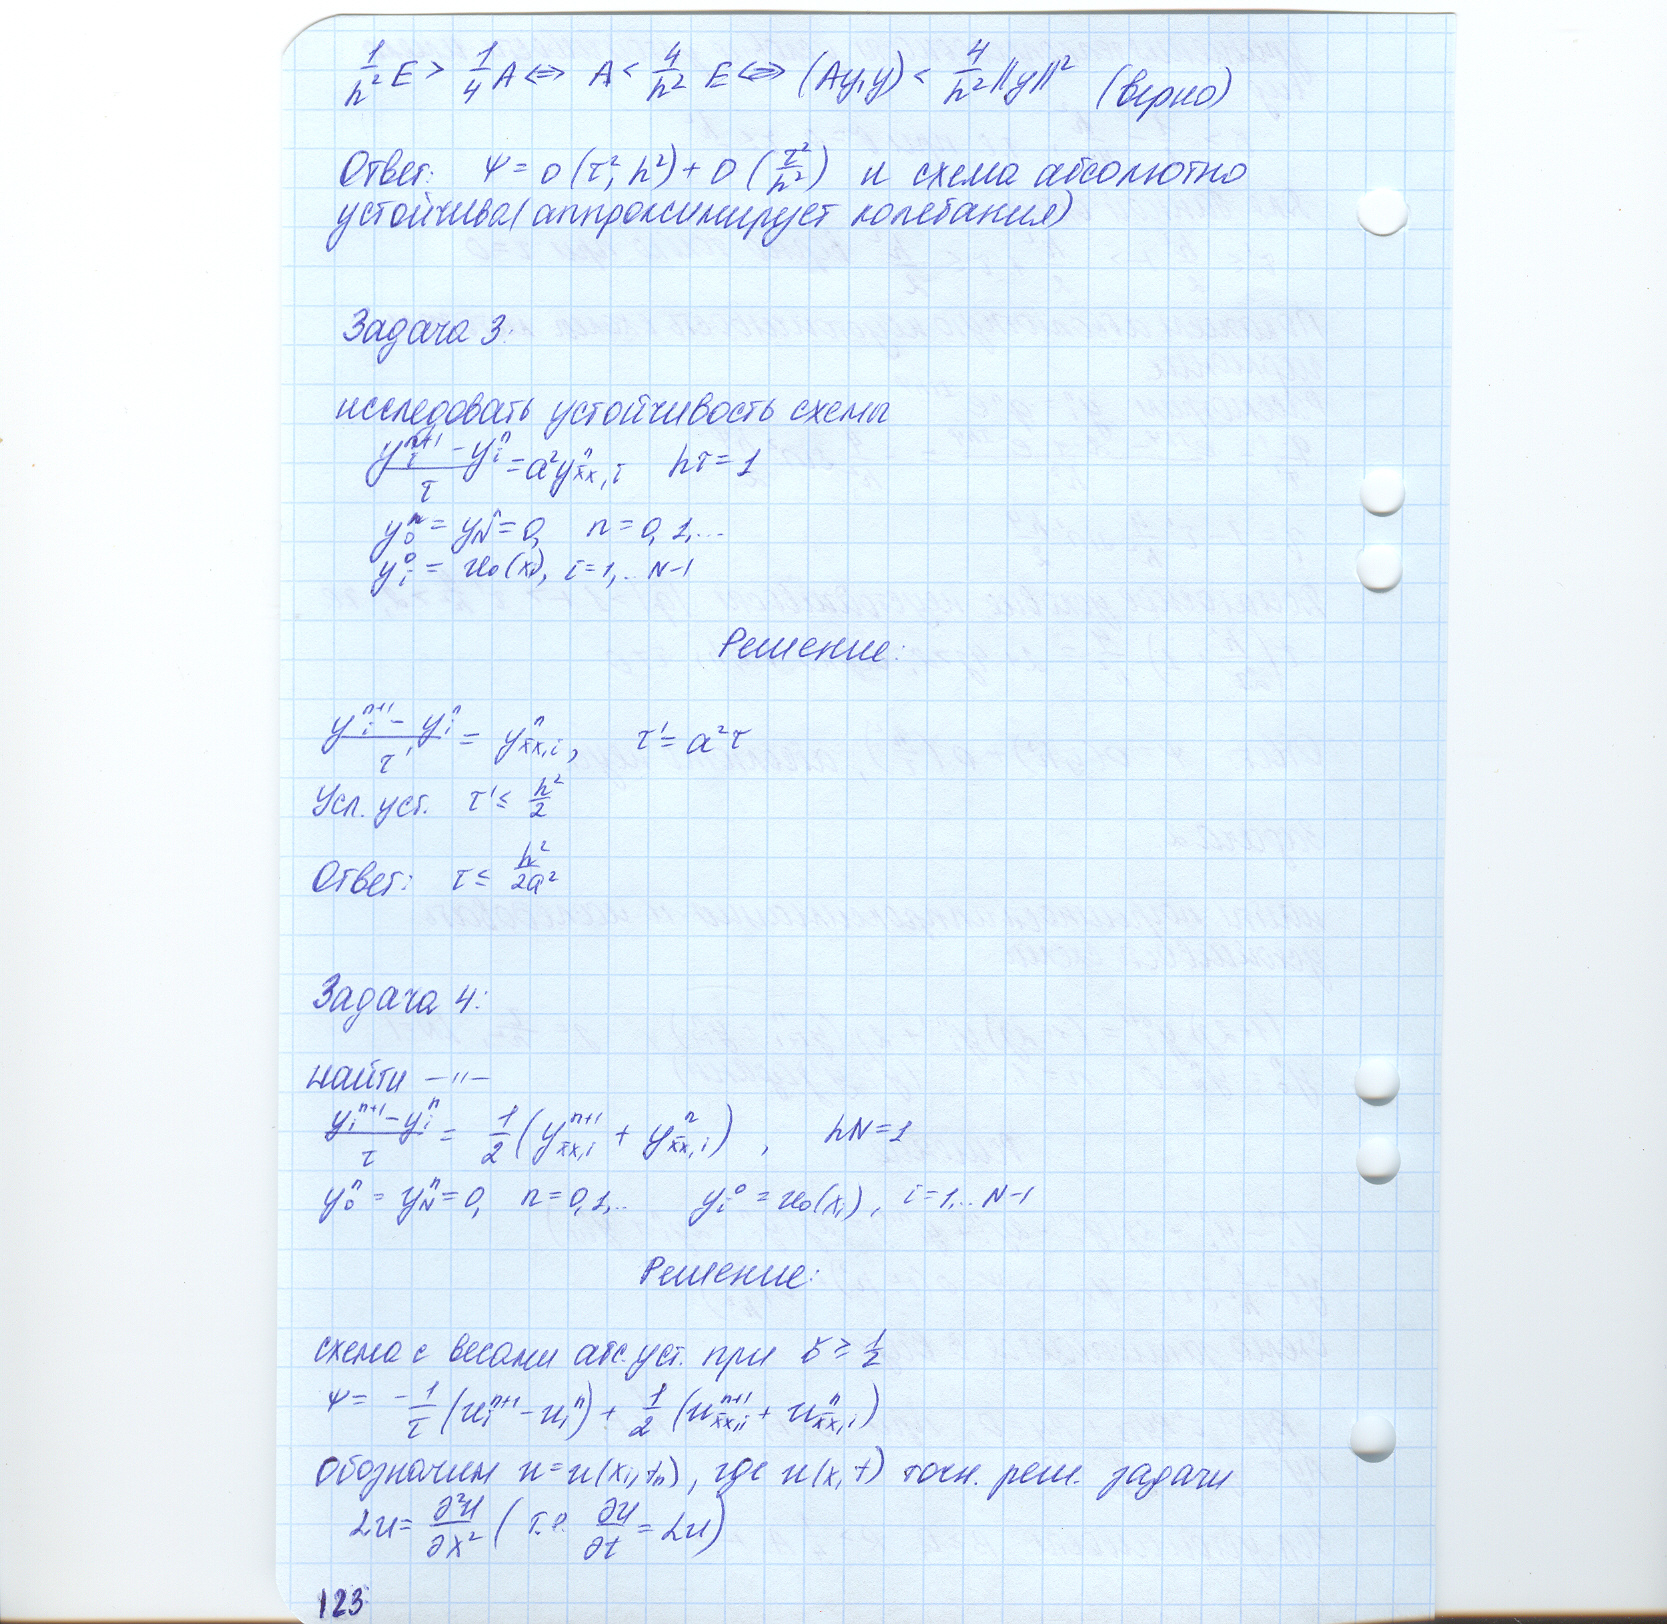 1/h² E > 1/4 A ⇔ A < 4/h² E ⇔ (Ay,y) < 4/h² ||y||² (верно)
Ответ: Ψ = O(τ², h²) + O(τ²/h²) и схема абсолютно
устойчива (аппроксимирует колебания)
Задача 3:
исследовать устойчивость схемы
(y_i^{n+1} - y_i^n)/τ = a² y_{x̄x,i}^n   hτ = 1
y_0^n = y_N^n = 0,   n = 0,1,...
y_i^0 = u_0(x_i), i = 1,.. N-1
Решение:
(y_i^{n+1} - y_i^n)/τ' = y_{x̄x,i}^n,   τ' = a²τ
Усл. уст.   τ' ≤ h²/2
Ответ:   τ ≤ h²/2a²
Задача 4:
найти –"–
(y_i^{n+1} - y_i^n)/τ = 1/2 (y_{x̄x,i}^{n+1} + y_{x̄x,i}^n),   hN = 1
y_0^n = y_N^n = 0,   n = 0,1,..   y_i^0 = u_0(x_i), i = 1,.. N-1
Решение:
схема с весами абс. уст. при σ ≥ 1/2
Ψ = -1/τ (u_i^{n+1} - u_i^n) + 1/2 (u_{x̄x,i}^{n+1} + u_{x̄x,i}^n)
обозначим u = u(x_i, t_n), где u(x,t) точн. реш. задачи
Lu = ∂²u/∂x² (т.е. ∂u/∂t = Lu)
123